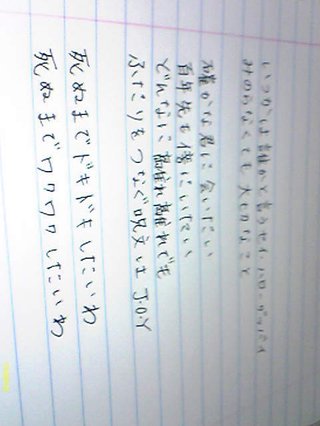 いつかは誰かと言うセイ・ハローグッバイ
みのらなくても大切なこと
確かな君に会いたい
百年先も傍にいたい
どんなに離れ離れでも
ふたりをつなぐ呪文は J.O.Y
死ぬまでドキドキしたいわ
死ぬまでワクワクしたいわ